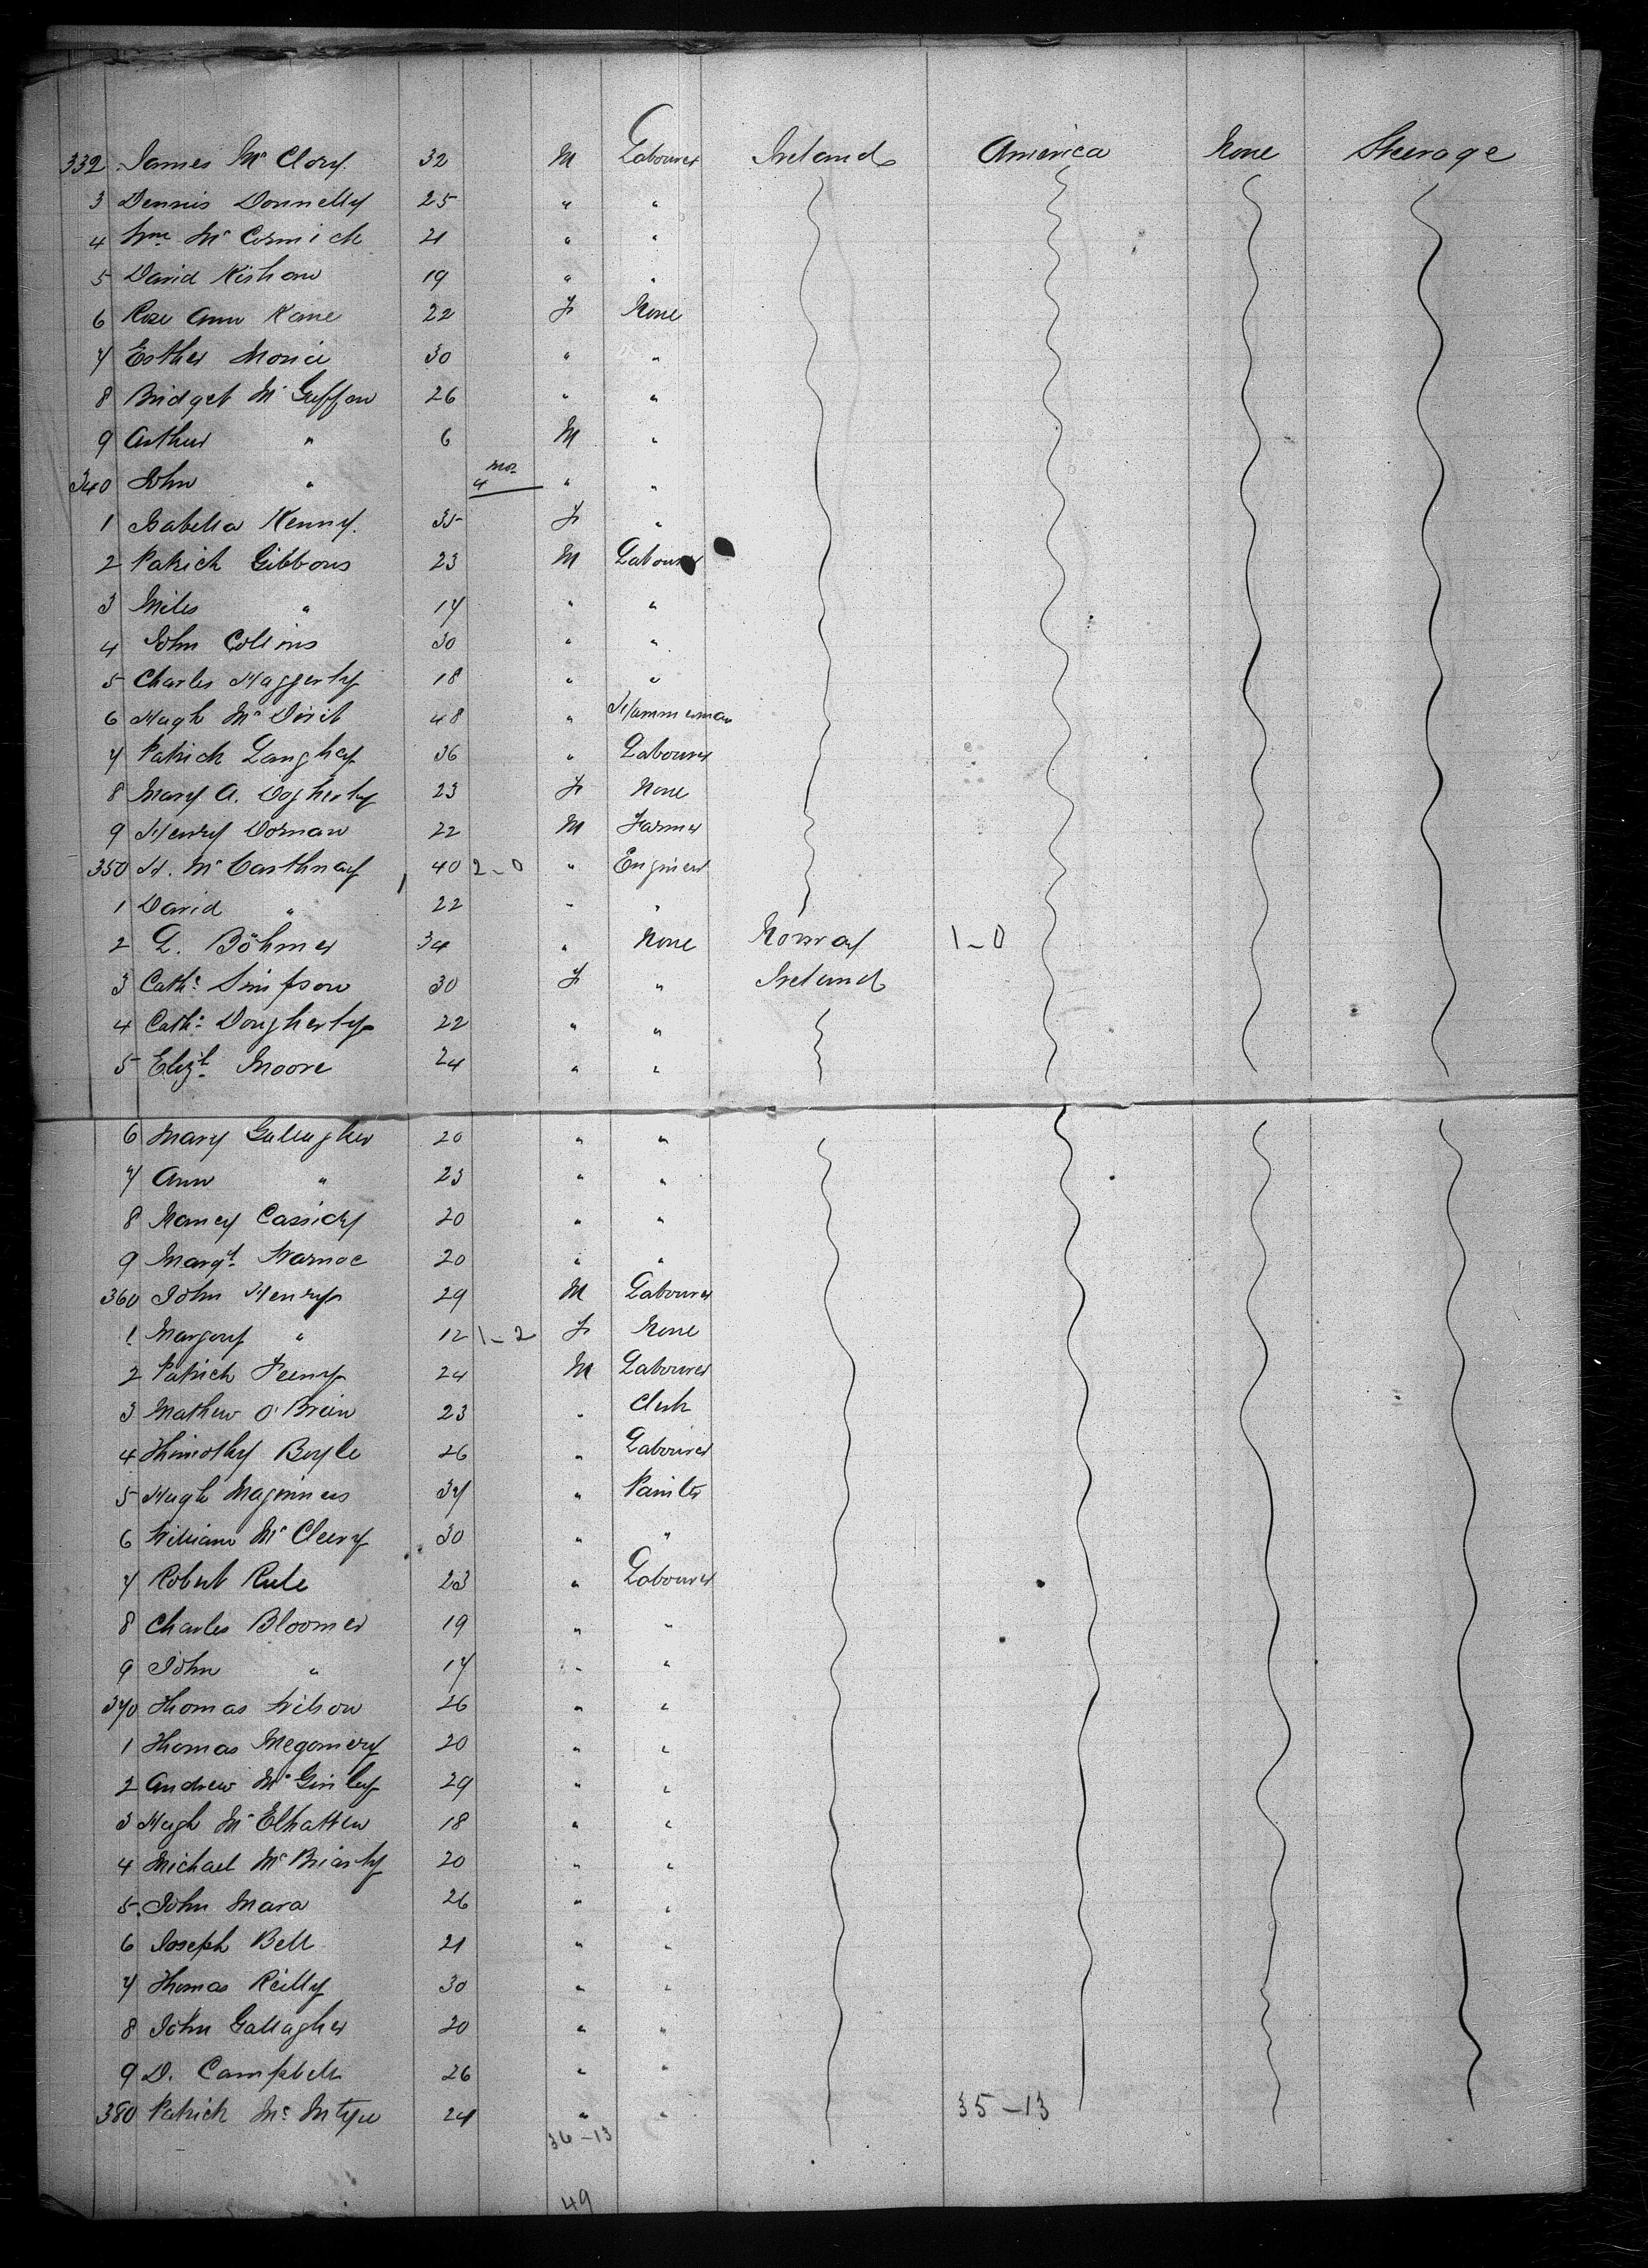 332 James McClory 32 M Labourer Ireland America None Steerage
3 Dennis Donnelly 25 " "
4 Wm McCormick 21 " "
5 David Kishaw 19 " "
6 Rose Ann Kane 22 F None
7 Esther 30 " "
8 Bridget McGuffan 26 " "
9 Arthur " 6 M "
340 John " 4 mos " "
1 Isabella Kenny 35 F "
2 Patrick Gibbons 23 M Labourer
3 Miles " 17 " "
4 John Collins 30 " "
5 Charles Haggerty 18 " "
6 Hugh Mc 48 " Hammerman
7 Patrick Langhey 36 " Labourer
8 Mary A. Dogherty 23 F None
9 Henry Dornan 22 M Farmer
350 H. McCarthnay 40 2-0 " Enginer
1 David " 22 " "
2 L. Böhmer 34 " None Norway 1-0
3 Cath. Simpson 30 F " Ireland
4 Cath. Dougherty 22 " "
5 Elizt. Moore 24 " "
6 Mary Gallagher 20 " "
7 Ann " 23 " "
8 Nancy Cassidy 20 " "
9 Margt. Warnoc 20 " "
360 John Henry 29 M Labourer
1 Margery " 12 1-2 F None
2 Patrick Feeny 24 M Labourer
3 Mathew O'Brien 23 " Clerk
4 Thimothy Boyle 26 " Labourer
5 Hugh Maginness 37 " Painter
6 William McCleery 30 " "
7 Robert Rule 23 " Labourer
8 Charles Bloomer 19 " "
9 John " 17 " "
370 Thomas Wilson 26 " "
1 Thomas Megomery 20 " "
2 Andrew McGinley 29 " "
3 Hugh McElhatten 18 " "
4 Michael McBriarty 20 " "
5 John Mara 26 " "
6 Joseph Bell 21 " "
7 Thomas Reilly 30 " "
8 John Gallagher 20 " "
9 D. Campbell 26 " "
380 Patrick McIntyre 24 " " 35-13
36-13
49